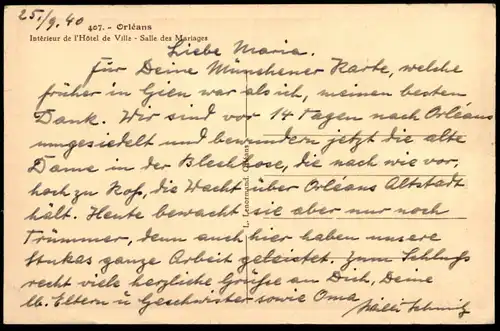 25./9. 40
407. - Orléans
Intérieur de l'Hôtel de Ville - Salle des Mariages
Liebe Maria.
Für Deine Münchener Karte, welche
früher in Gien war als ich, meinen besten
Dank. Wir sind vor 14 Tagen nach Orléans
umgesiedelt und bewundern jetzt die alte
Dame in der Blechhose, die nach wie vor,
hoch zu Roß, die Wacht über Orléans Altstadt
hält. Heute bewacht sie aber nur noch
Trümmer, denn auch hier haben unsere
Stukas ganze Arbeit geleistet. Zum Schluß
recht viele herzliche Grüße an Dich, Deine
lb. Eltern u Geschwister sowie Oma
Willi Schmitz
L. Lenormand, Orléans